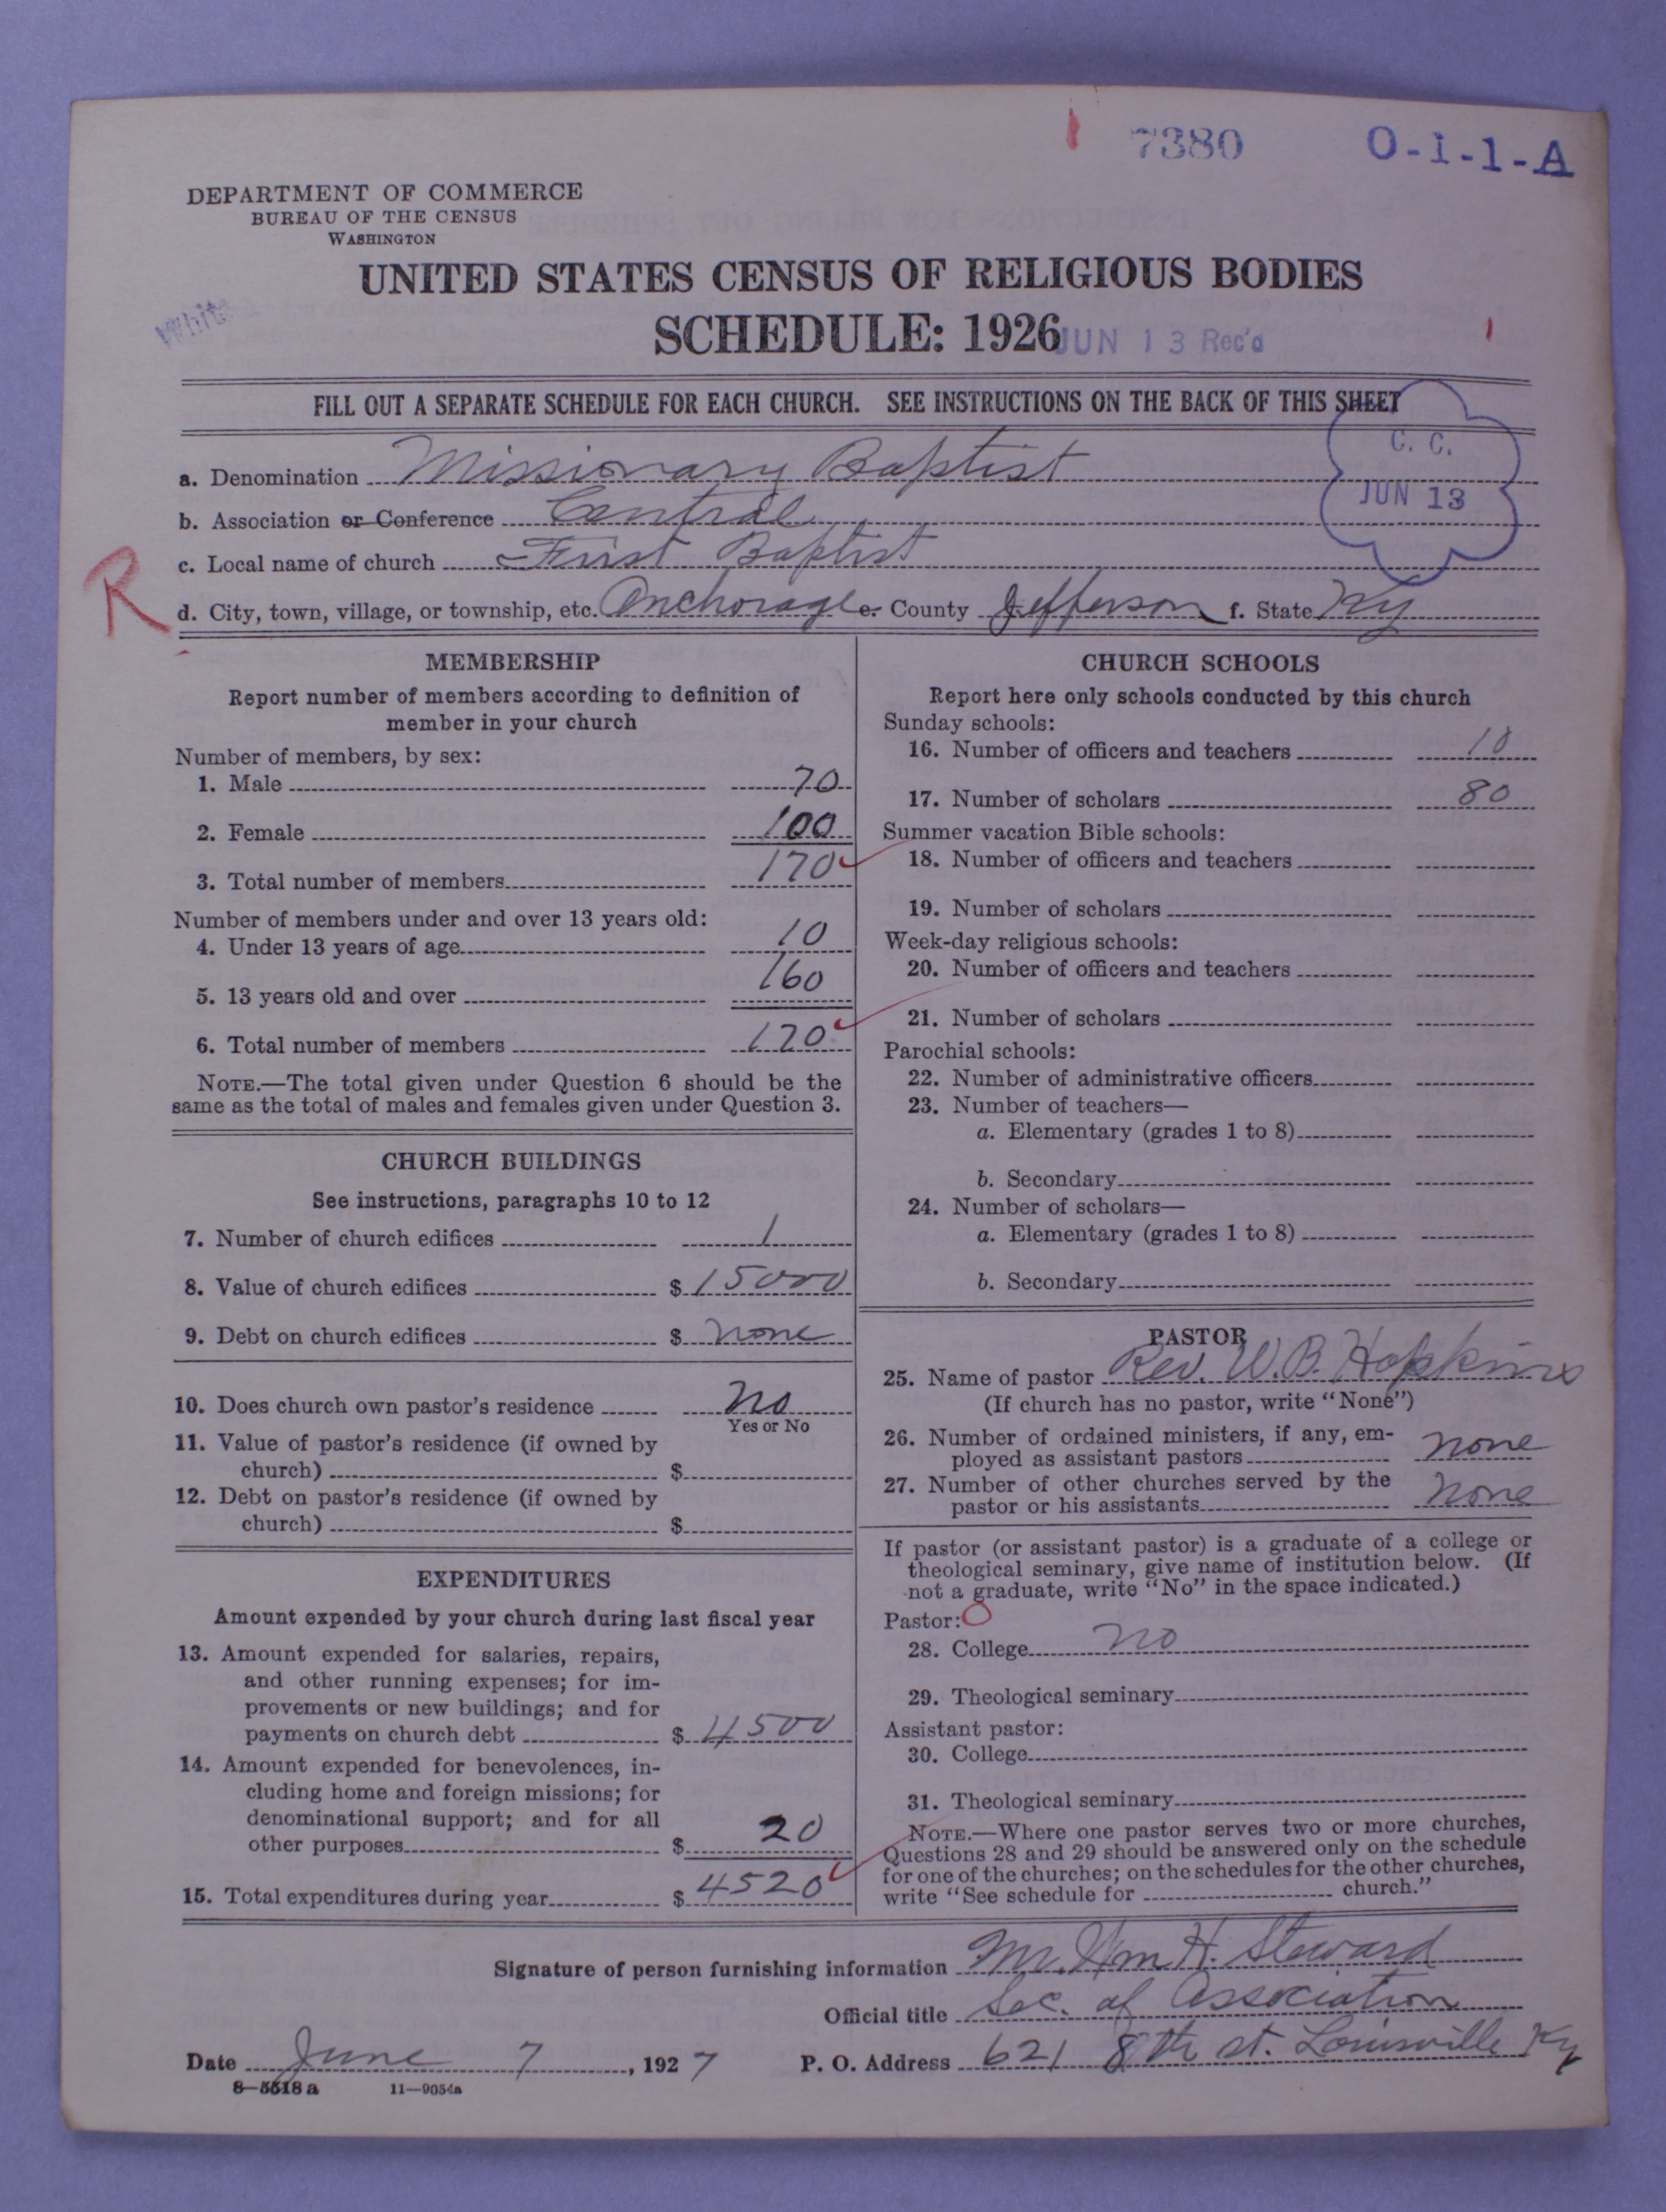 7380 O-1-1-A
DEPARTMENT OF COMMERCE
BUREAU OF THE CENSUS
WASHINGTON
UNITED STATES CENSUS OF RELIGIOUS BODIES
White
SCHEDULE: 1926
JUN 13 Rec'd
FILL OUT A SEPARATE SCHEDULE FOR EACH CHURCH. SEE INSTRUCTIONS ON THE BACK OF THIS SHEET
C. C.
JUN 13
a. Denomination Missionary Baptist
b. Association or Conference Central
c. Local name of church First Baptist
R
d. City, town, village, or township, etc. Anchorage e. County Jefferson f. State Ky
MEMBERSHIP
Report number of members according to definition of
member in your church
Number of members, by sex:
1. Male 70
2. Female 100
3. Total number of members 170
Number of members under and over 13 years old:
4. Under 13 years of age 10
5. 13 years old and over 160
6. Total number of members 170
NOTE.—The total given under Question 6 should be the
same as the total of males and females given under Question 3.
CHURCH BUILDINGS
See instructions, paragraphs 10 to 12
7. Number of church edifices 1
8. Value of church edifices $ 15000
9. Debt on church edifices $ none
10. Does church own pastor's residence no
Yes or No
11. Value of pastor's residence (if owned by
church) $
12. Debt on pastor's residence (if owned by
church) $
EXPENDITURES
Amount expended by your church during last fiscal year
13. Amount expended for salaries, repairs,
and other running expenses; for im-
provements or new buildings; and for
payments on church debt $ 4500
14. Amount expended for benevolences, in-
cluding home and foreign missions; for
denominational support; and for all
other purposes $ 20
15. Total expenditures during year $ 4520
CHURCH SCHOOLS
Report here only schools conducted by this church
Sunday schools:
16. Number of officers and teachers 10
17. Number of scholars 80
Summer vacation Bible schools:
18. Number of officers and teachers
19. Number of scholars
Week-day religious schools:
20. Number of officers and teachers
21. Number of scholars
Parochial schools:
22. Number of administrative officers
23. Number of teachers—
a. Elementary (grades 1 to 8)
b. Secondary
24. Number of scholars—
a. Elementary (grades 1 to 8)
b. Secondary
PASTOR
25. Name of pastor Rev. W. B. Hopkins
(If church has no pastor, write "None")
26. Number of ordained ministers, if any, em-
ployed as assistant pastors none
27. Number of other churches served by the
pastor or his assistants None
If pastor (or assistant pastor) is a graduate of a college or
theological seminary, give name of institution below. (If
not a graduate, write "No" in the space indicated.)
Pastor: O
28. College no
29. Theological seminary
Assistant pastor:
30. College
31. Theological seminary
NOTE.—Where one pastor serves two or more churches,
Questions 28 and 29 should be answered only on the schedule
for one of the churches; on the schedules for the other churches,
write "See schedule for church."
Signature of person furnishing information Mr. Wm H. Steward
Official title Sec. of Association
Date June 7, 1927 P. O. Address 621 8th st. Louisville Ky
8—5518a 11—9054a